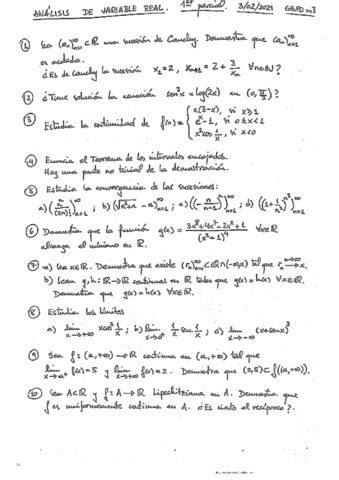 ANÁLISIS DE VARIABLE REAL. 1er parcial. 3/02/2021 GRUPO m3
① Sea (aₙ)ₙ₌₁^∞ ⊂ ℝ una sucesión de Cauchy. Demuestra que (aₙ)ₙ₌₁^∞
es acotada.
¿Es de Cauchy la sucesión x₁=2, xₙ₊₁ = 2 + 3/xₙ ∀n∈ℕ?
② ¿Tiene solución la ecuación sen³x = log(2x) en (0, π/2)?
③ Estudia la continuidad de f(x) = { x(3-x), si x≥1
eˣ-1, si 0≤x<1
x² cos 1/x, si x<0
④ Enuncia el Teorema de los intervalos encajados.
Haz una parte no trivial de la demostración.
⑤ Estudia la convergencia de las sucesiones:
b) (√(n²+n) - n)ₙ₌₁^∞
⑥ Demuestra que la función g(x) =
(x²+1)⁴ ∀x∈ℝ
alcanza el mínimo en ℝ.
⑦ a) Sea x∈ℝ. Demuestra que existe (rₙ)ₙ₌₁^∞ ⊂ ℚ∩(-∞,x) tal que rₙ → x.
b) Sean g,h: ℝ→ℝ continuas en ℝ tales que g(x) = h(x) ∀x∈
Demuestra que g(x) = h(x) ∀x∈ℝ.
⑧ Estudia los límites
a) lím x→+∞ x cos² 1/x; b) lím x→0⁺ 1/x sen 1/x; c) lím x→-∞ (x+senx)³
⑨ Sea f: (a,+∞) → ℝ continua en (a,+∞) tal que
lím x→a⁺ f(x) = 5 y lím x→+∞ f(x) = 2. Demuestra que (2,5) ⊂ f((a,+∞)).
⑩ Sea A⊂ℝ y f: A→ℝ Lipschitziana en A. Demuestra que
f es uniformemente continua en A. ¿Es cierto el recíproco?